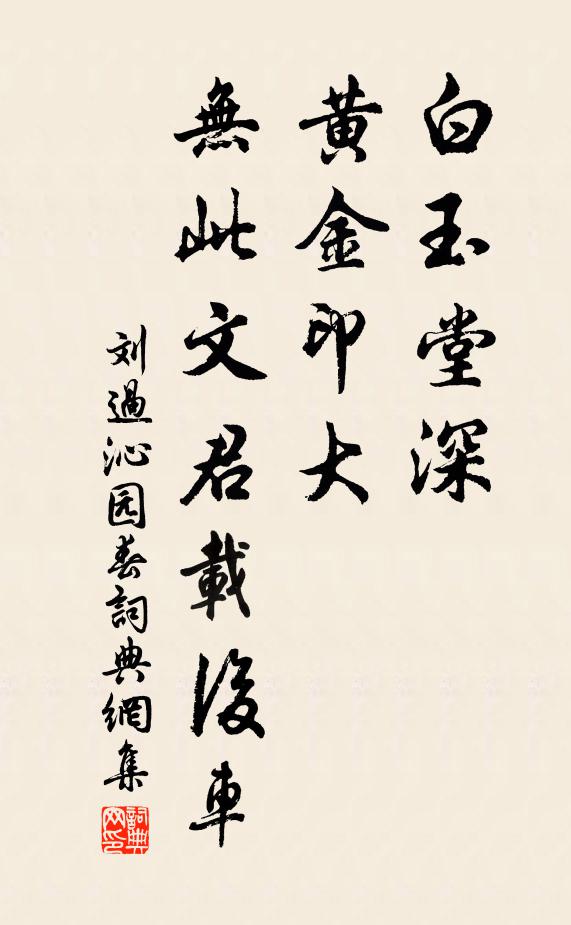 白玉堂深
黄金印大
無此文君載後車
刘過沁园春詞典網集
詞典網印